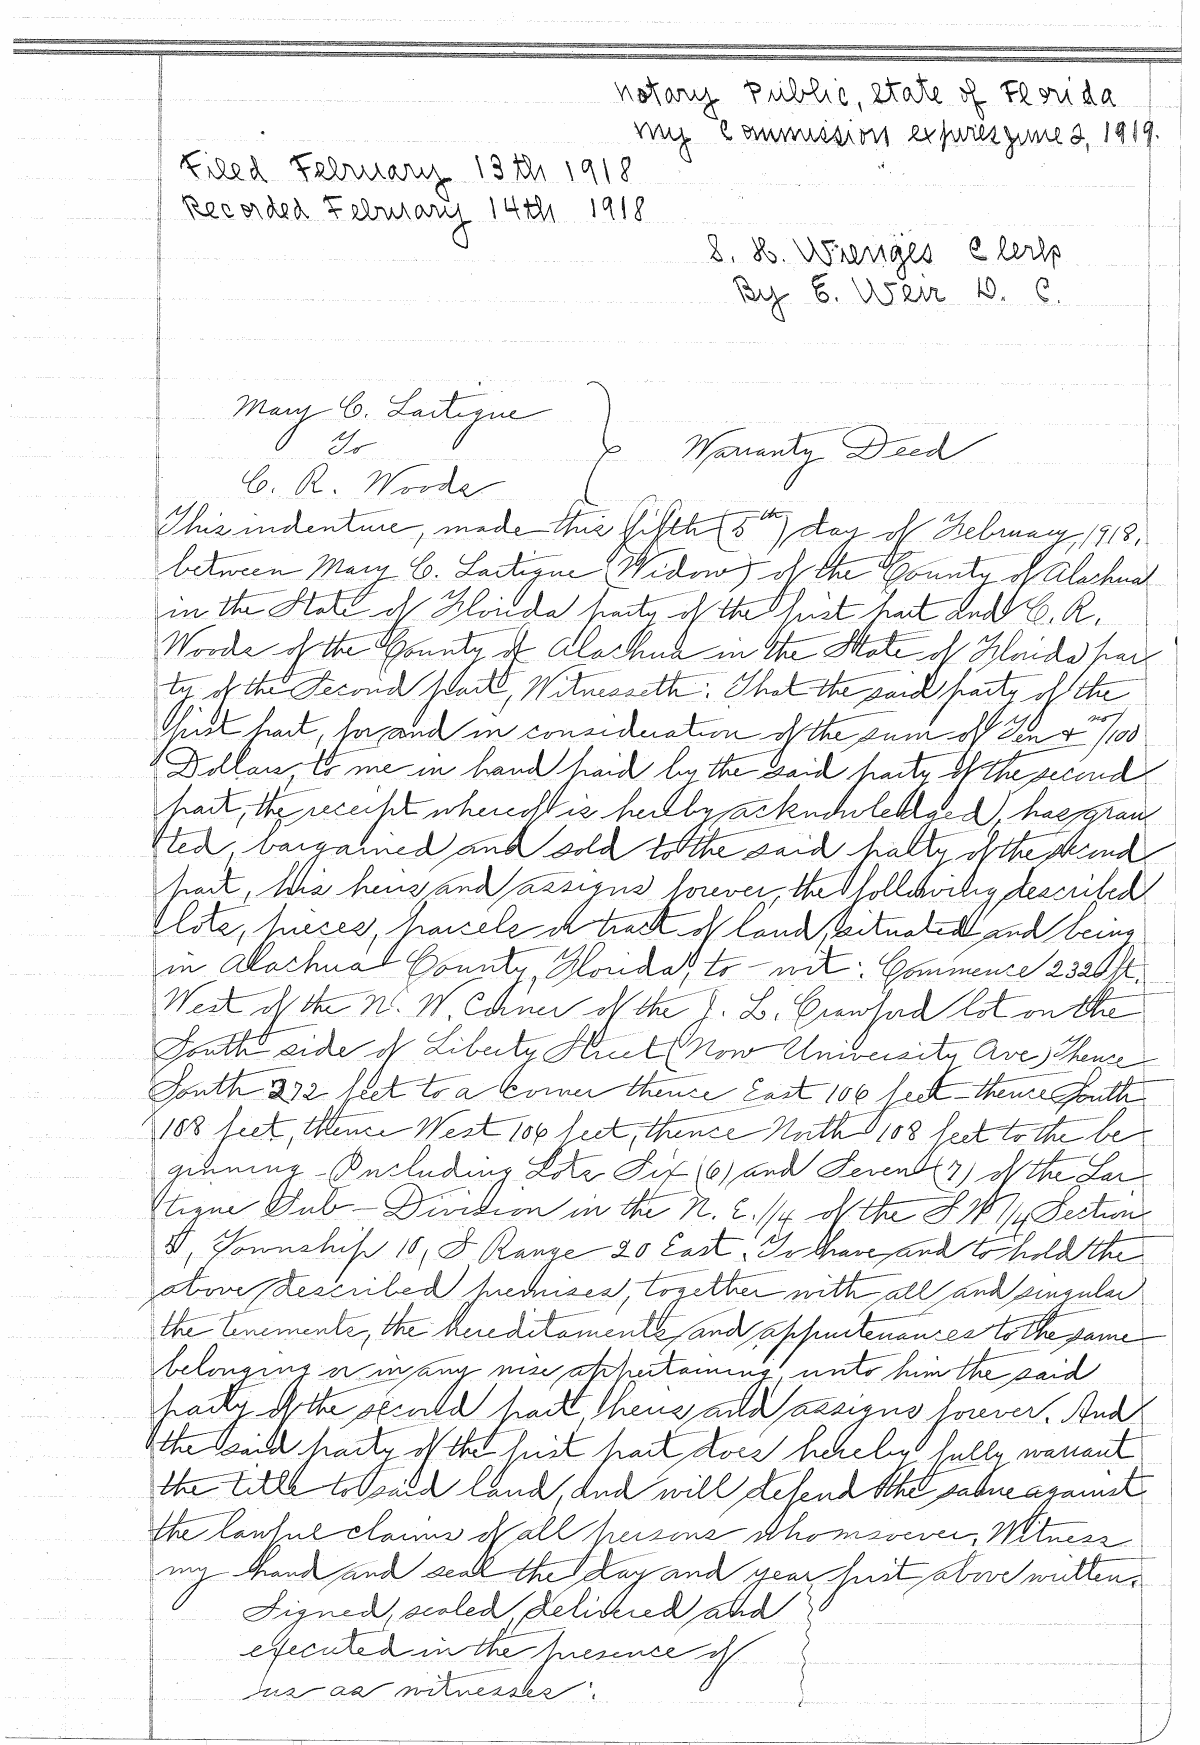 Notary Public, State of Florida
My Commission expires June 2, 1919.
Filed February 13th 1918
Recorded February 14th 1918
S. H. Wienges Clerk
By E. Weir D. C.
Mary C. Lartigue
To
Warranty Deed
C. R. Woods
This indenture, made this fifth (5th) day of February, 1918,
between Mary C. Lartigue (Widow) of the County of Alachua
in the State of Florida party of the first part and C. R.
Woods of the County of Alachua in the State of Florida par
ty of the Second part, Witnesseth: That the said party of the
first part, for and in consideration of the sum of Ten & no/100
Dollars, to me in hand paid by the said party of the second
part, the receipt whereof is hereby acknowledged, has gran
ted, bargained and sold to the said party of the second
part, his heirs and assigns forever, the following described
lots, pieces, parcels or tract of land, situated and being
in Alachua County, Florida, to-wit: Commence 232 ft.
West of the N. W. Corner of the J. L. Crawford lot on the
South side of Liberty Street (Now University Ave) Thence
South 272 feet to a corner thence East 106 feet - thence South
108 feet, thence West 106 feet, thence North 108 feet to the be
ginning - Including Lots Six (6) and Seven (7) of the Lar
tigue Sub-Division in the N. E. 1/4 of the S W 1/4 Section
5, Township 10, S Range 20 East. To have and to hold the
above described premises, together with all and singular
the tenements, the hereditaments and appurtenances to the same
belonging or in any wise appertaining, unto him the said
party of the second part, heirs and assigns forever. And
the said party of the first part does hereby fully warrant
the title to said land, and will defend the same against
the lawful claims of all persons whomsoever. Witness
my hand and seal the day and year first above written.
Signed, sealed, delivered and
executed in the presence of
us as witnesses: